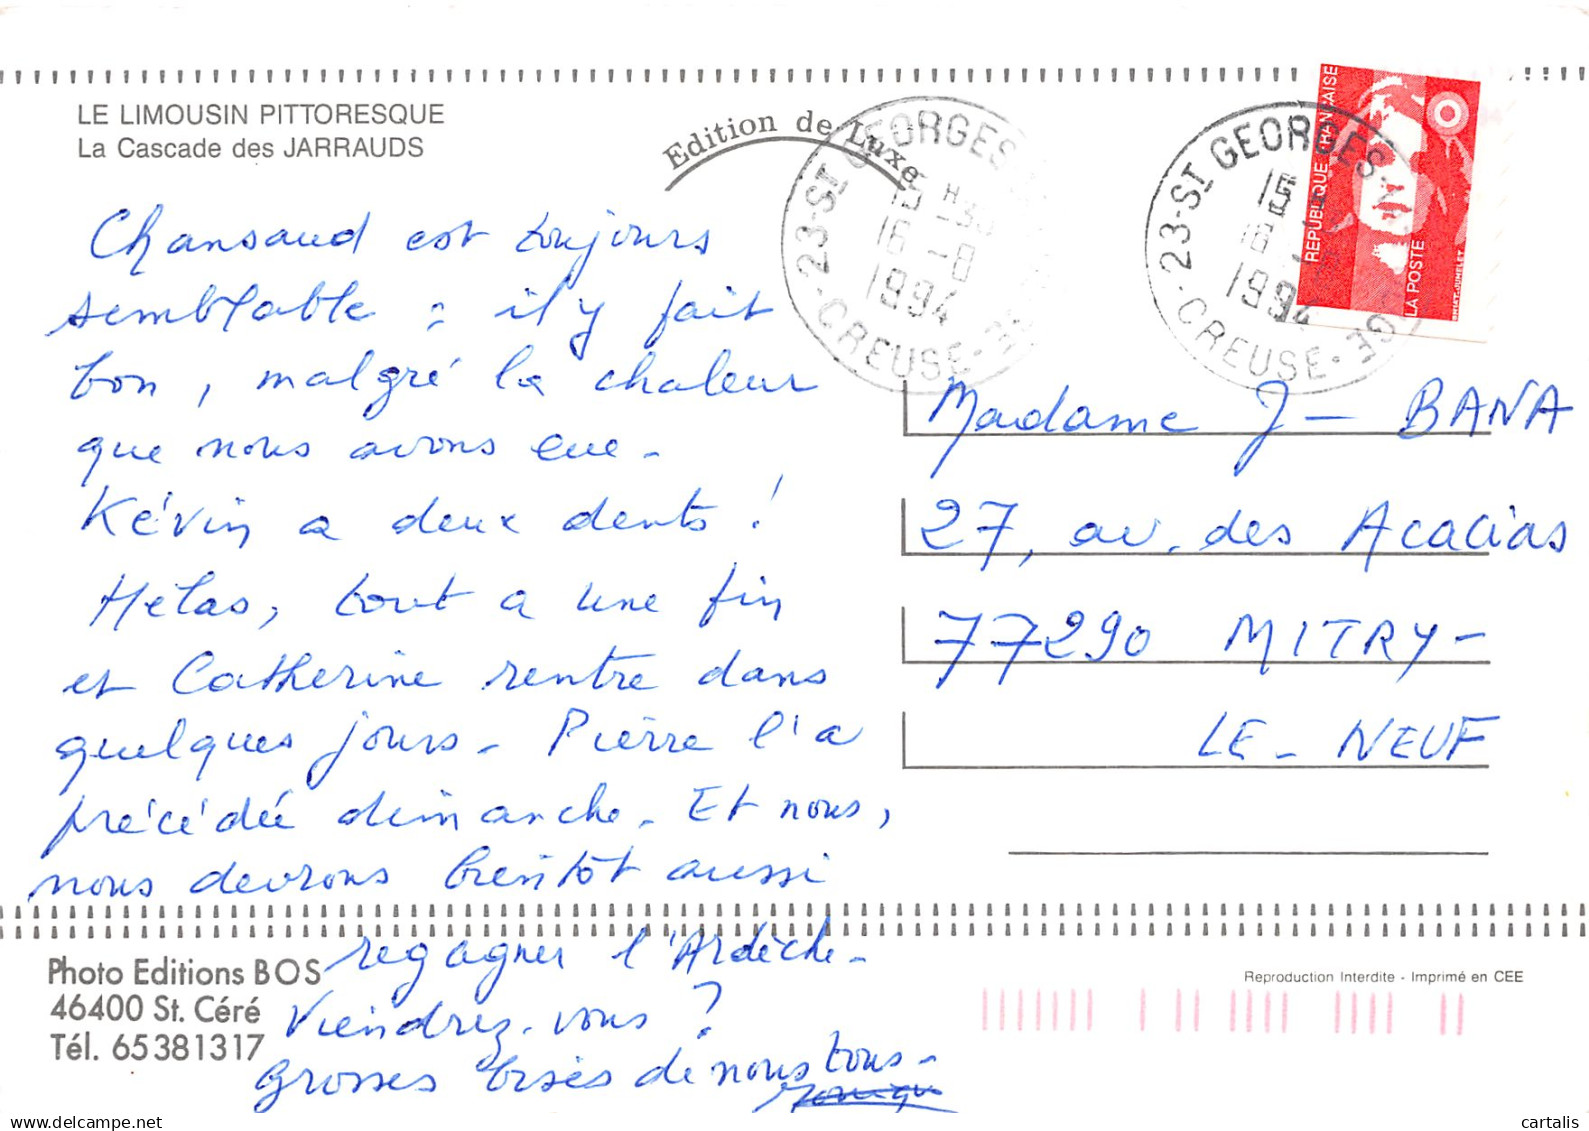 LE LIMOUSIN PITTORESQUE
La Cascade des JARRAUDS
Edition de Luxe
23 - ST GEORGES
15 H 30
16 - 8
1994
CREUSE
23 - ST GEORGES
15
16
1994
CREUSE
RÉPUBLIQUE FRANÇAISE
LA POSTE
Chansaud est toujours
semblable : il y fait
bon, malgré la chaleur
que nous avons eue -
Kévin a deux dents !
Hélas, tout a une fin
et Catherine rentre dans
quelques jours - Pierre l'a
précédée dimanche. Et nous,
nous devrons bientôt aussi
regagner l'Ardèche -
Viendrez-vous ?
Grosses bises de nous tous -
Madame J - BANA
27, av. des Acacias
77290 MITRY -
LE - NEUF
Photo Editions BOS
46400 St. Céré
Tél. 65381317
Reproduction Interdite - Imprimé en CEE
delcampe.net
cartalis